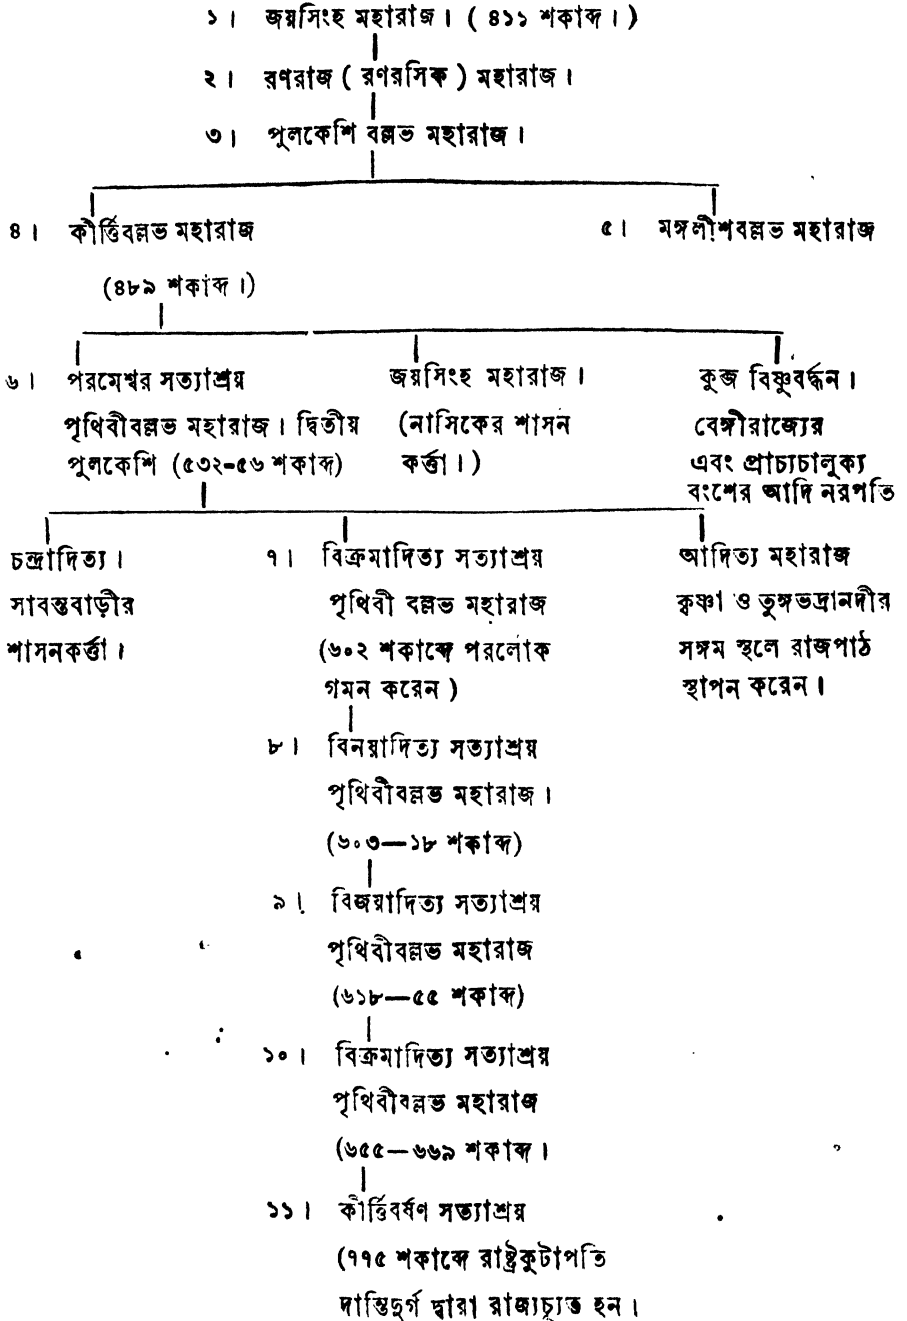 ১। জয়সিংহ মহারাজ। ( ৪১১ শকাব্দ। )
২। রণরাজ ( রণরসিক ) মহারাজ।
৩। পুলকেশি বল্লভ মহারাজ।
৪। কীর্ত্তিবল্লভ মহারাজ
(৪৮৯ শকাব্দ।)
৫। মঙ্গলীশবল্লভ মহারাজ
৬। পরমেশ্বর সত্যাশ্রয়
পৃথিবীবল্লভ মহারাজ। দ্বিতীয়
পুলকেশি (৫৩২-৫৬ শকাব্দ)
জয়সিংহ মহারাজ।
(নাসিকের শাসন
কর্ত্তা।)
কুব্জ বিষ্ণুবর্দ্ধন।
বেঙ্গীরাজ্যের
এবং প্রাচ্যচালুক্য
বংশের আদি নরপতি
চন্দ্রাদিত্য।
সাবন্তবাড়ীর
শাসনকর্ত্তা।
৭। বিক্রমাদিত্য সত্যাশ্রয়
পৃথিবী বল্লভ মহারাজ
(৬০২ শকাব্দে পরলোক
গমন করেন )
আদিত্য মহারাজ
কৃষ্ণা ও তুঙ্গভদ্রানদীর
সঙ্গম স্থলে রাজপাঠ
স্থাপন করেন।
৮। বিনয়াদিত্য সত্যাশ্রয়
পৃথিবীবল্লভ মহারাজ।
(৬০৩—১৮ শকাব্দ)
৯। বিজয়াদিত্য সত্যাশ্রয়
পৃথিবীবল্লভ মহারাজ
(৬১৮—৫৫ শকাব্দ)
১০। বিক্রমাদিত্য সত্যাশ্রয়
পৃথিবীবল্লভ মহারাজ
(৬৫৫—৬৬৯ শকাব্দ।
১১। কীর্ত্তিবর্ষণ সত্যাশ্রয়
(৭৭৫ শকাব্দে রাষ্ট্রকুটাপতি
দান্তিদুর্গ দ্বারা রাজ্যচ্যুত হন।